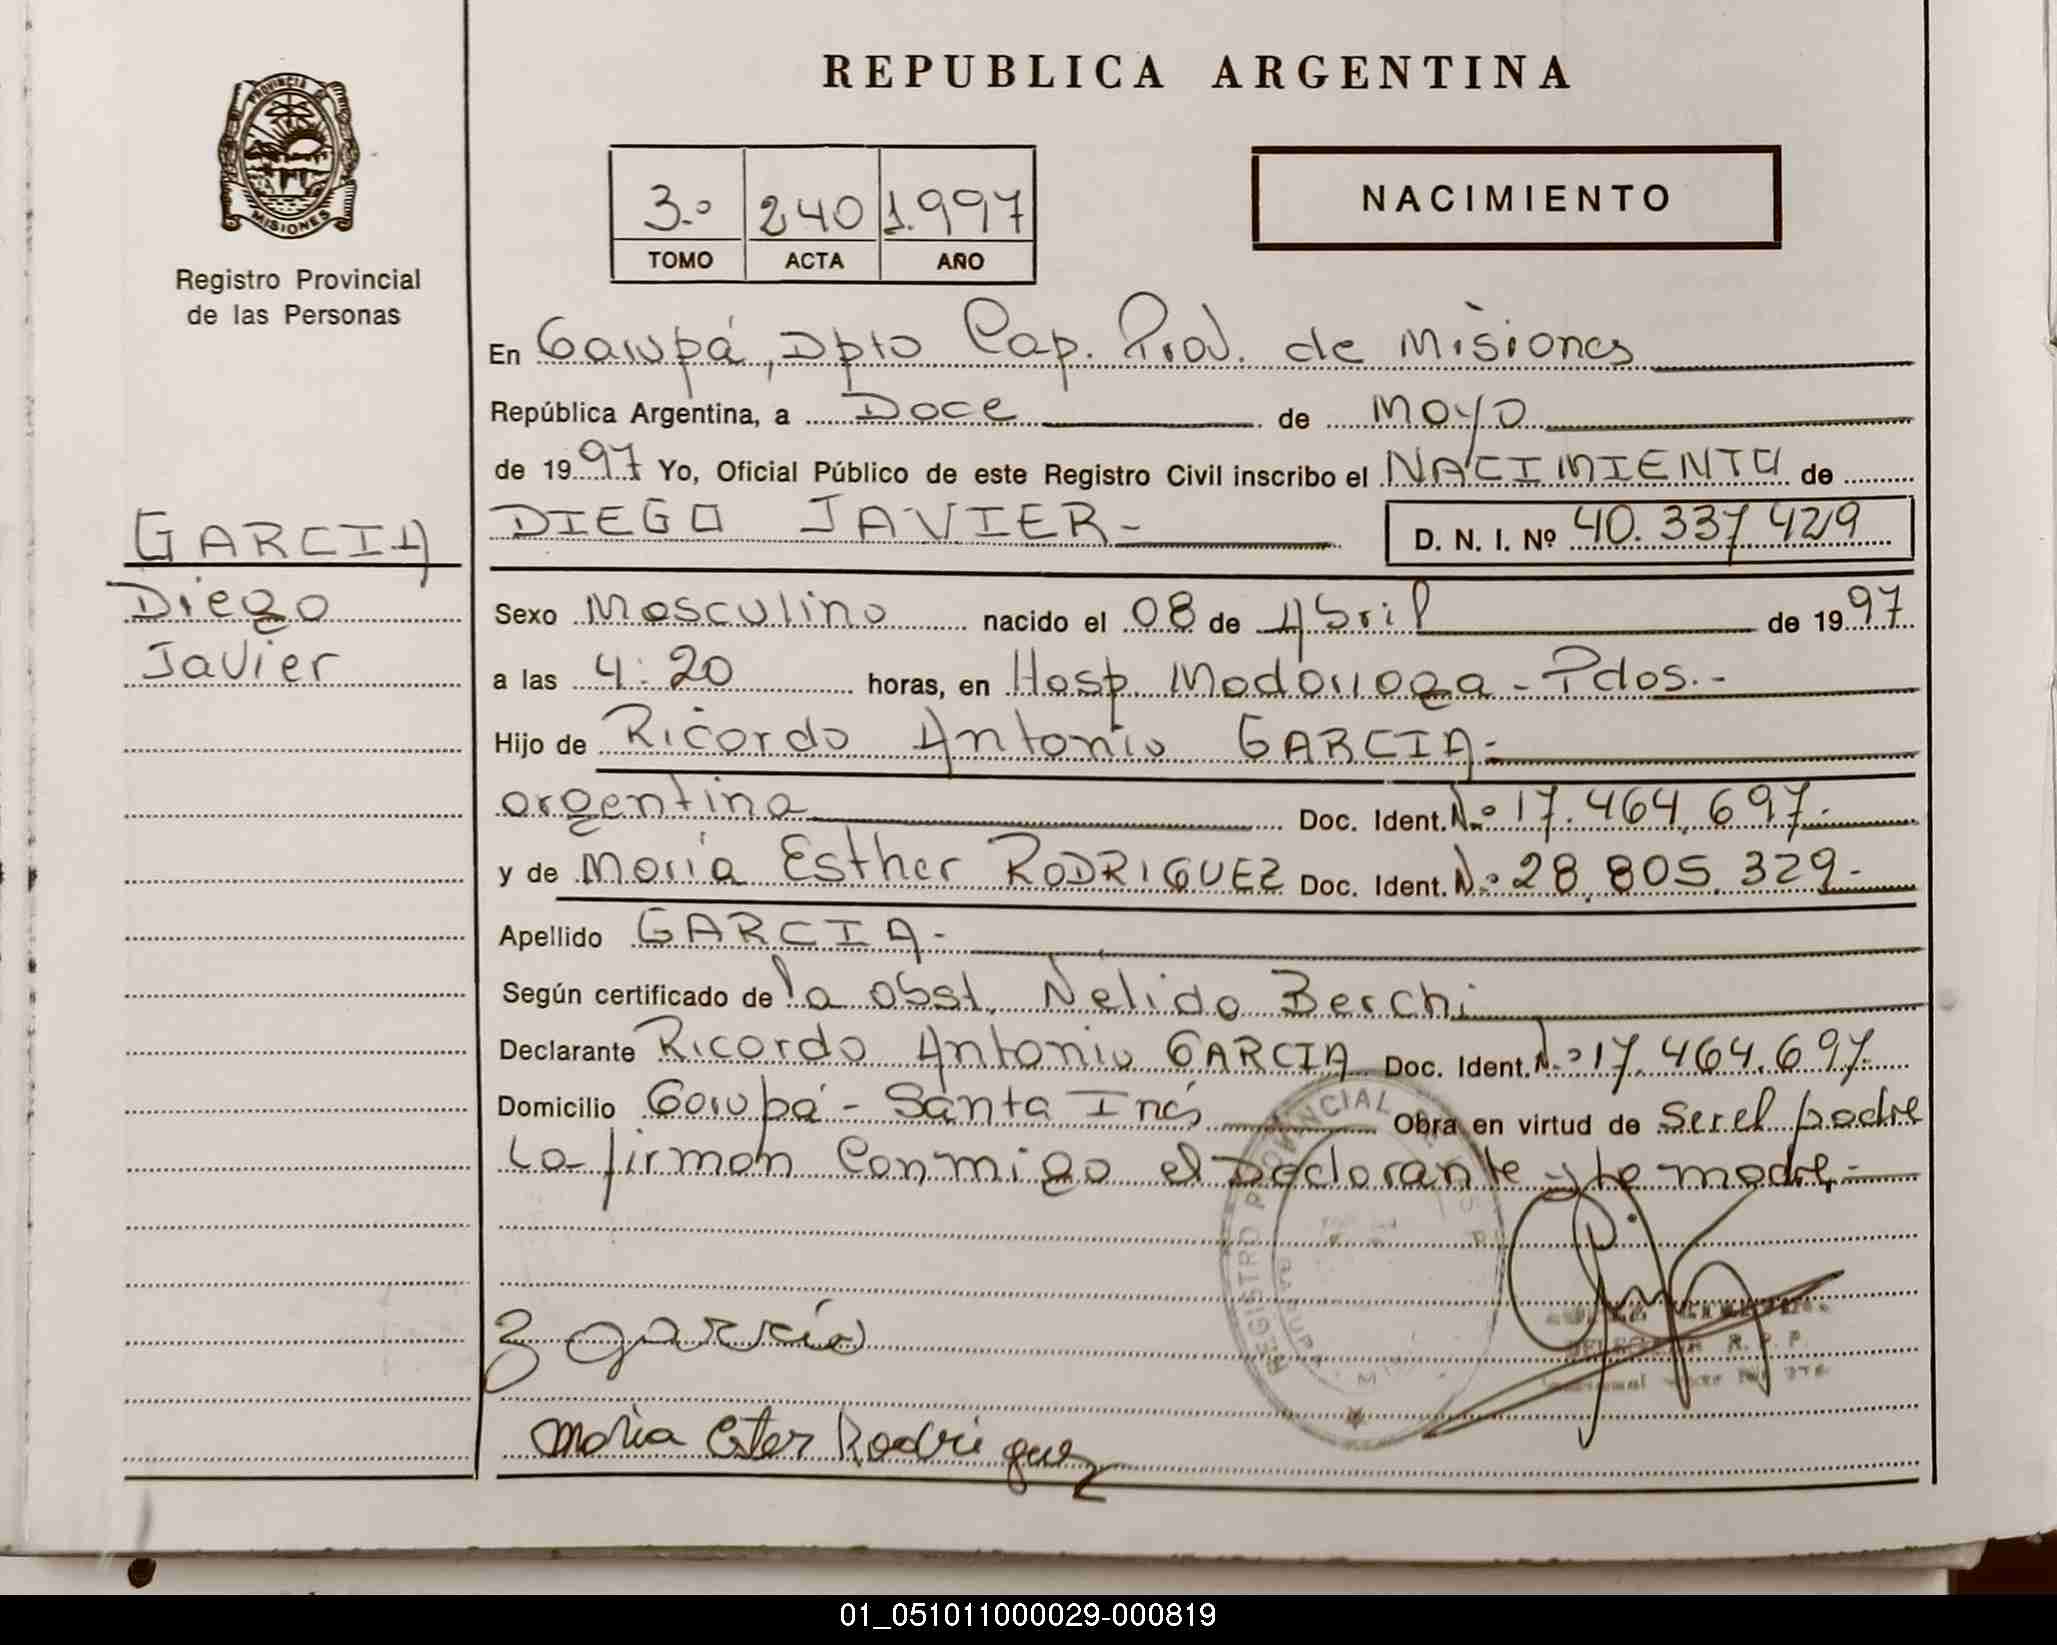 REPUBLICA ARGENTINA
PROVINCIA DE
MISIONES
Registro Provincial
de las Personas
3.º 240 1.997
TOMO ACTA AÑO
NACIMIENTO
En Garupá, Dpto Cap. Prov. de Misiones
República Argentina, a Doce de Mayo
de 1997 Yo, Oficial Público de este Registro Civil inscribo el NACIMIENTO de
GARCIA
Diego
Javier
DIEGO JAVIER- D. N. I. Nº 40.337.429
Sexo Masculino nacido el 08 de Abril de 1997
a las 4:20 horas, en Hosp. Madariaga - Pdas.-
Hijo de Ricardo Antonio GARCIA-
argentina Doc. Ident. N.º 17.464.697.-
y de María Esther RODRIGUEZ Doc. Ident. N.º 28.805.329.-
Apellido GARCIA-
Según certificado de la obst. Nélida Berchi
Declarante Ricardo Antonio GARCIA Doc. Ident. N.º 17.464.697.
Domicilio Garupá - Santa Inés Obra en virtud de ser el padre
La firman conmigo el Declarante y la madre.-
REGISTRO PROVINCIAL
R. P. P.
García
Maria Ester Rodriguez
01_051011000029-000819